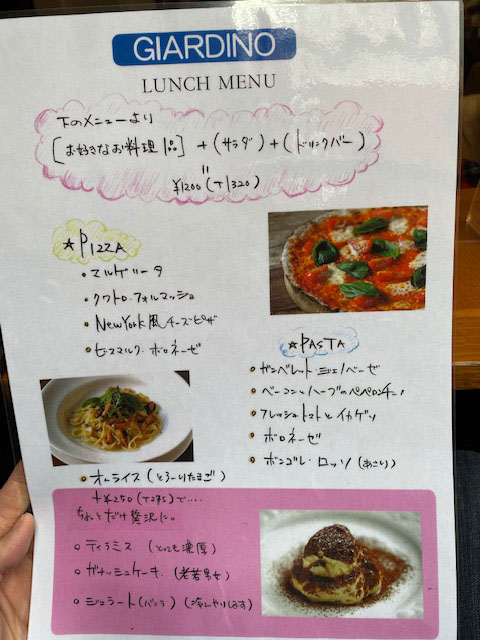 GIARDINO
LUNCH MENU
下のメニューより
[お好きなお料理1品] + (サラダ) + (ドリンクバー)
=
¥1200 (T1320)
★PIZZA
•マルゲリータ
•クワトロ・フォルマッジョ
•NewYork風チーズピザ
•ビスマルク・ボロネーゼ
★PASTA
•ガンベレット・ジェノベーゼ
•ベーコンとハーブのペペロンチーノ
•フレッシュトマトとイカゲソ
•ボロネーゼ
•ボンゴレ・ロッソ (あさり)
•オムライス (とろーりたまご)
+¥250 (T275) で.....
ちょっとだけ贅沢に。
•ティラミス (とっても濃厚)
•ガナッシュケーキ. (老若男女)
•ジェラート (バニラ) (冷んやりします)